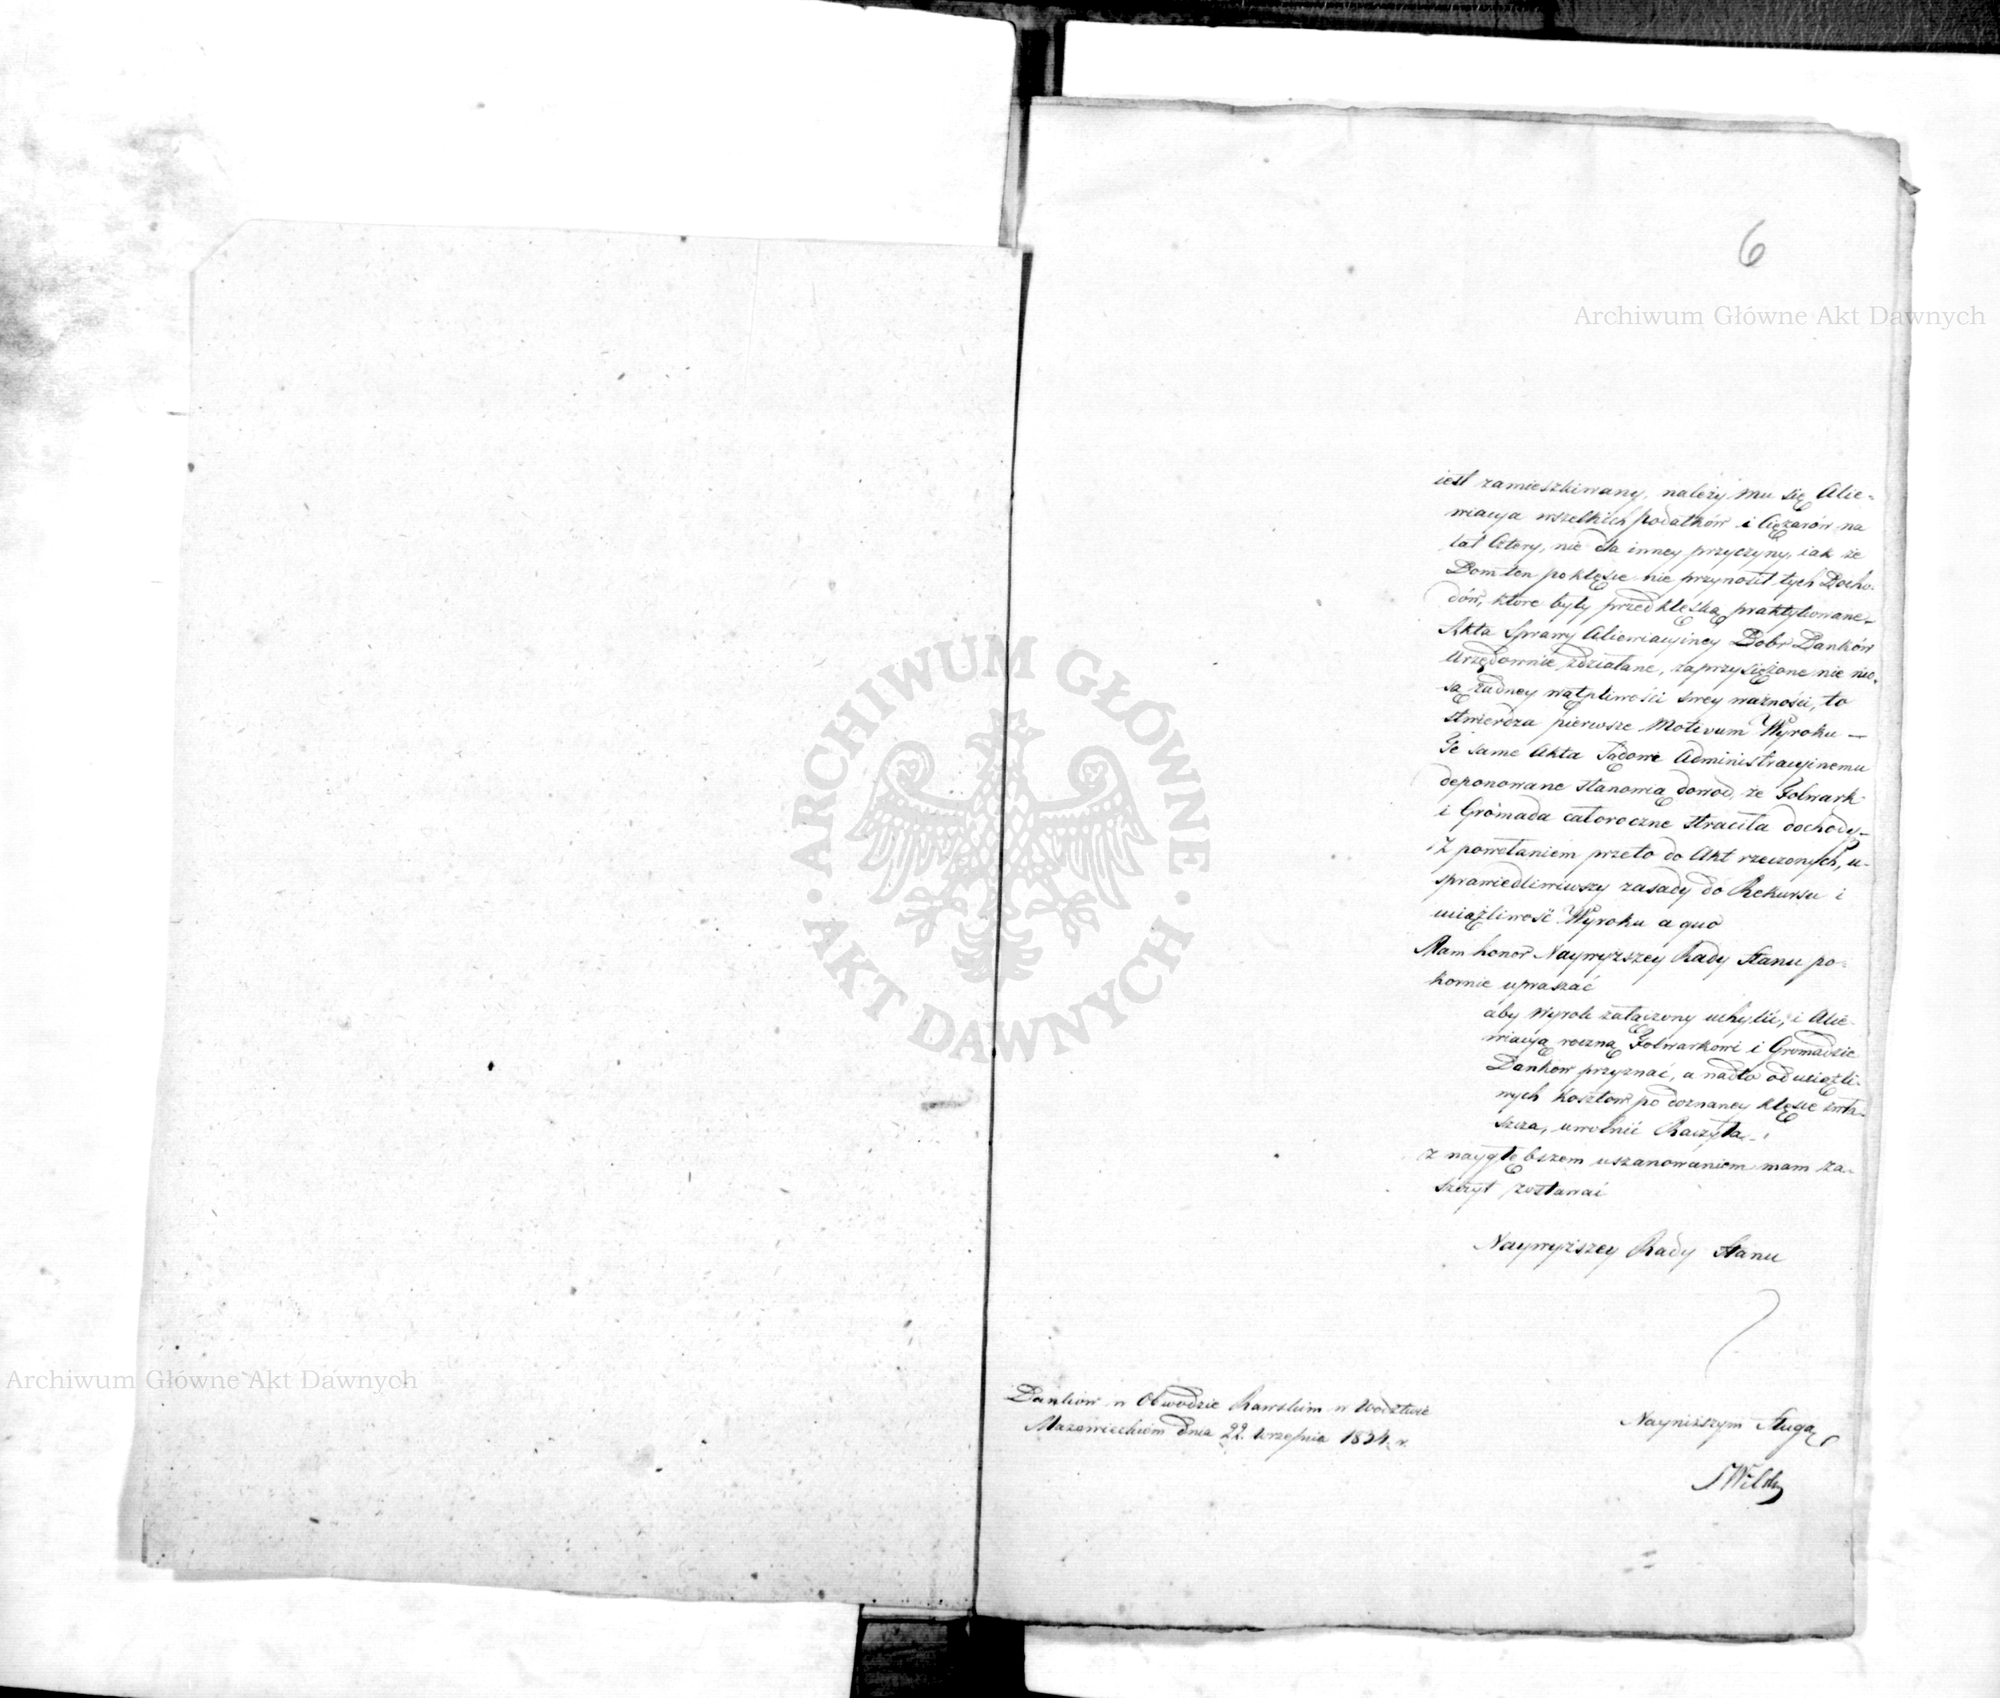 6
Archiwum Główne Akt Dawnych
iest zamieszkiwany, należy mu się Alie-
wiacya wszelkich podatków i Ciężarów na
lat Cztery, nie dla inney przyczyny, iak że
Dom ten po klęsce nie przynosił tych Docho-
dów, które były przed klęską praktykowane.
Akta Sprawy Aliewiacyiney Dobr Danków
Urzędownie zdziałane, zaprzysiężone nie nio-
są żadney wątpliwości swey ważności, to
stwierdza pierwsze Motivum Wyroku —
Te same Akta Sądowi Administracyinemu
deponowane stanowią dowod, że Folwark
i Gromada całoroczne straciła dochody —
Z powołaniem przeto do Akt rzeczonych, u-
sprawiedliwiwszy zasady do Rekursu i
uciążliwość Wyroku a quo
Mam honor Naywyższey Rady Stanu po-
kornie upraszać
aby Wyrok załączony uchylić, i Alie-
wiacyą roczną Folwarkowi i Gromadzie
Danków przyznać, a nadto od uciążli-
wych kosztow po doznaney klęsce zwła-
szcza, uwolnić Raczyła.
z naygłębszem uszanowaniem mam za-
szczyt zostawać
Naywyższey Rady Stanu
Danków w Obwodzie Rawskim w Wodztwie
Mazowieckiem dnia 22. Września 1834. r.
Nayniższym Sługą
ARCHIWUM GŁÓWNE · AKT DAWNYCH ·
Archiwum Główne Akt Dawnych